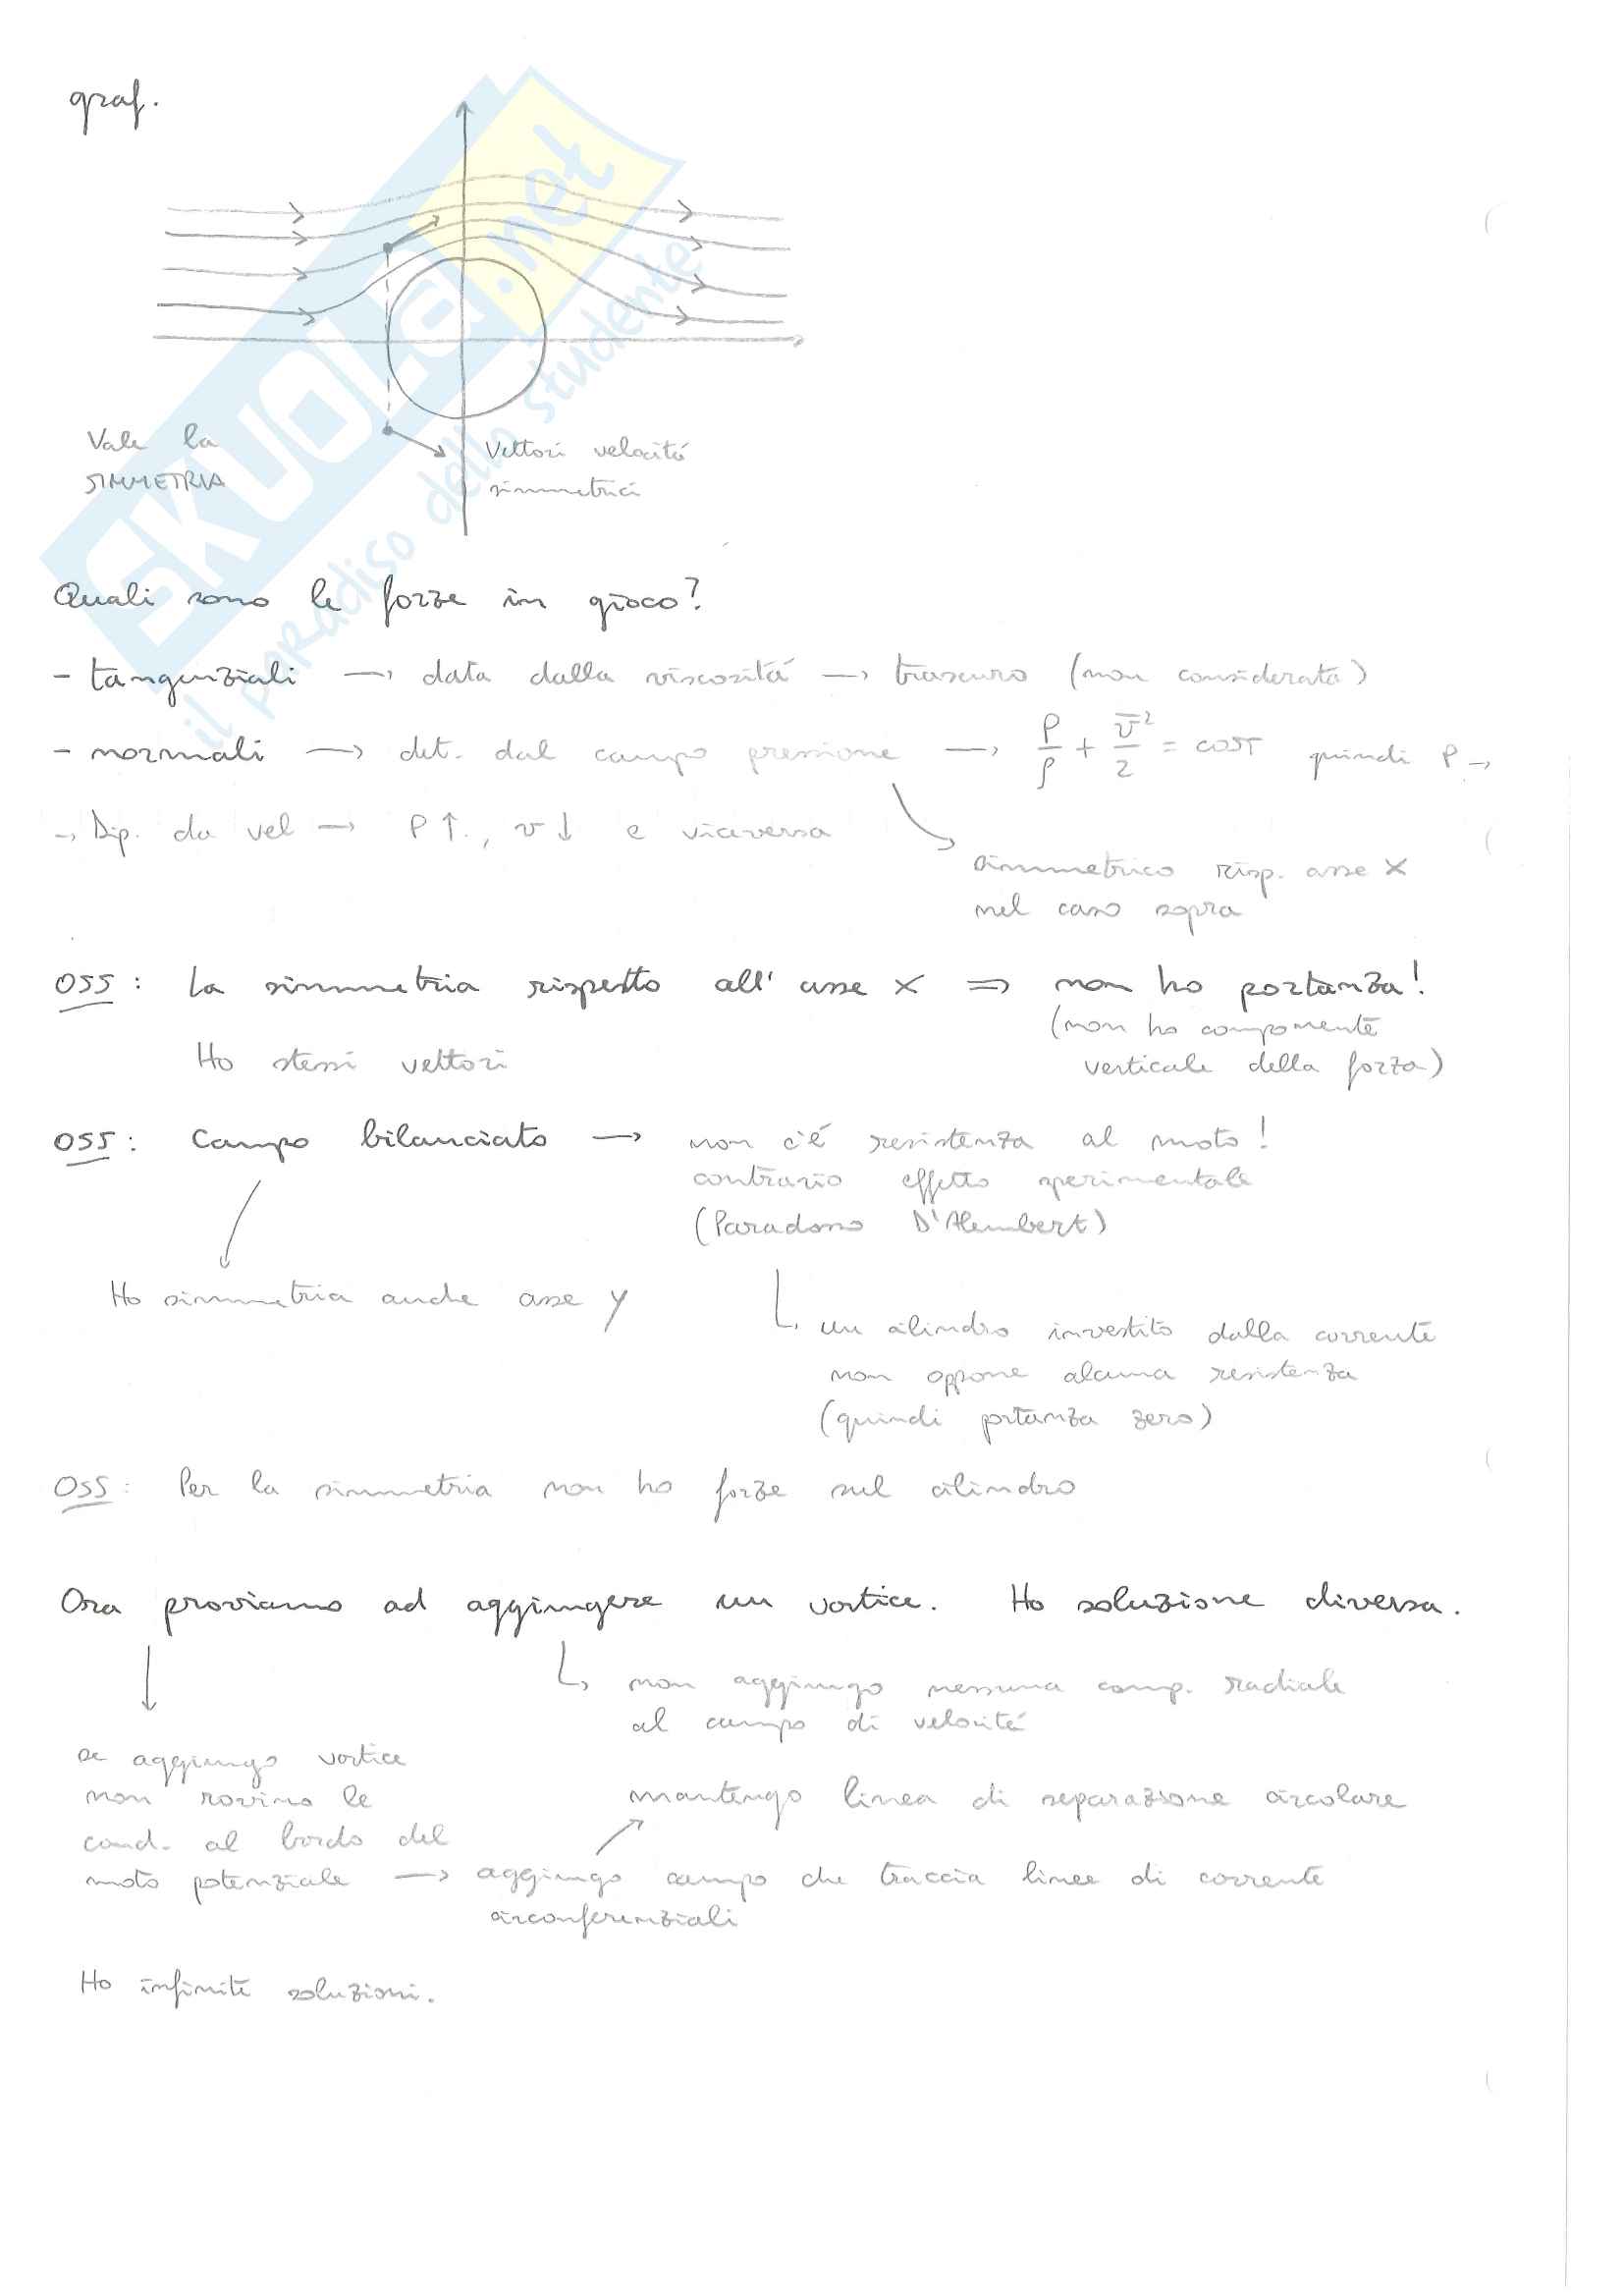 graf.
SKUOLA.net
il paradiso dello studente
Vale la
SIMMETRIA
Vettori velocità
simmetrici
Quali sono le forze in gioco?
- tangenziali → data dalla viscosità → trascuro (non considerata)
- normali → det. dal campo pressione → P/ρ + v̅²/2 = cost quindi P →
→ Dip. da vel → P↑, v↓ e viceversa
simmetrico risp. asse x
nel caso sopra
OSS: la simmetria rispetto all'asse x ⇒ non ho portanza!
(non ho componente
verticale della forza)
Ho stessi vettori
OSS: Campo bilanciato → non c'è resistenza al moto!
contrario effetto sperimentale
(Paradosso D'Alembert)
Ho simmetria anche asse y
un cilindro investito dalla corrente
non oppone alcuna resistenza
(quindi portanza zero)
OSS: Per la simmetria non ho forze sul cilindro
Ora proviamo ad aggiungere un vortice. Ho soluzione diversa.
non aggiungo nessuna comp. radiale
al campo di velocità
se aggiungo vortice
non rovino le
cond. al bordo del
moto potenziale → aggiungo campo che traccia linee di corrente
circonferenziali
mantengo linea di separazione circolare
Ho infinite soluzioni.